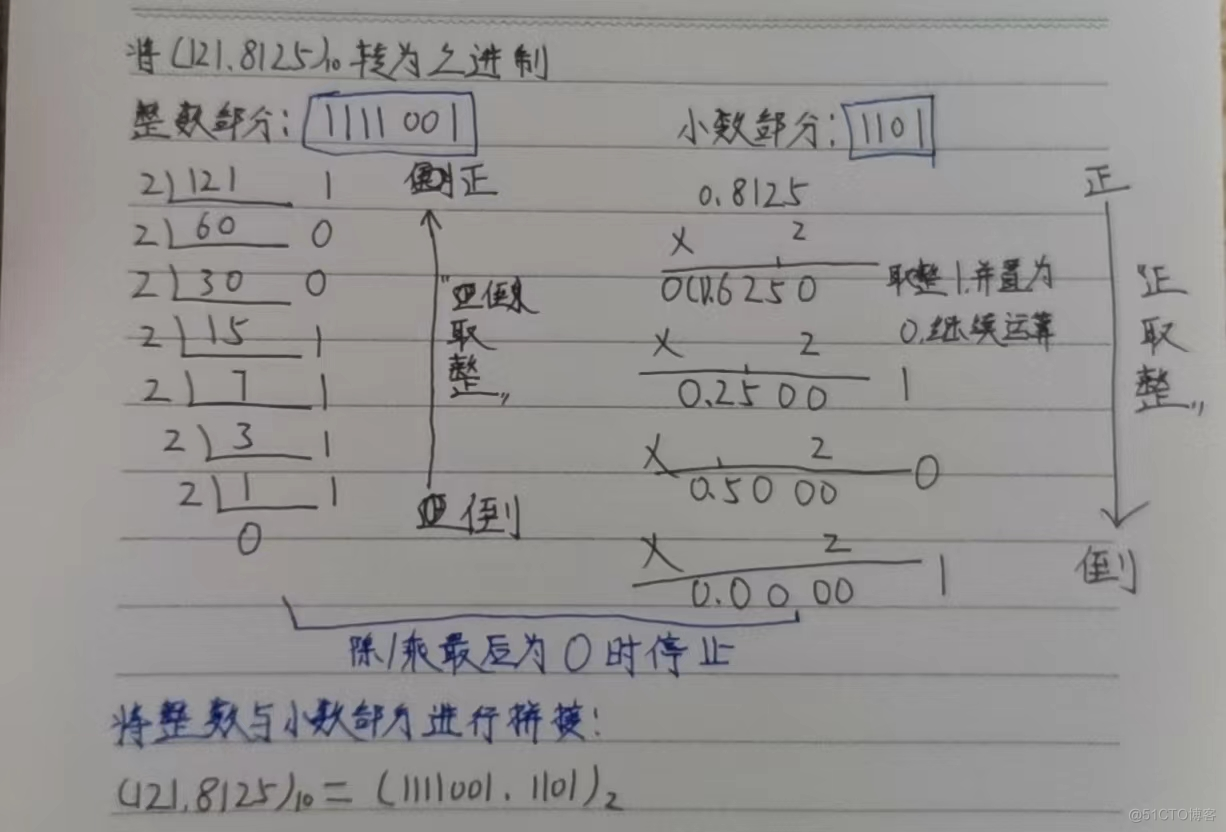 将(121.8125)₁₀转为2进制
整数部分: 1111001
小数部分: 1101
2 121 1
2 60 0
2 30 0
2 15 1
2 7 1
2 3 1
2 1 1
0
正
取整"
倒
0.8125
× 2
.6250 取整1,并置为
0.继续运算
× 2
0.2500 1
× 2
0.5000 0
× 2
0.0000 1
正
"正取整"
倒
除/乘最后为0时停止
将整数与小数部分进行拼接:
(121.8125)₁₀ = (1111001.1101)₂
@51CTO博客